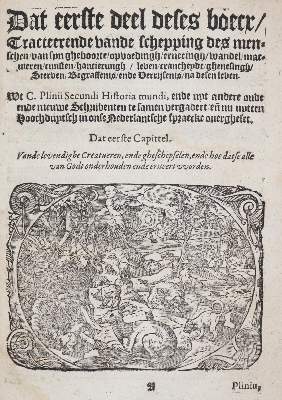 Dat eerste deel deses boecx/
Tracteerende vande schepping des men-
schen van syn gheboorte/opvoedingh/ /wandel/
/leven/cranckheydt/ghenesingh/
Sterven/Begraffenis/ende Verrijsenis/na desen leven.
Wt C. Plinii Secundi Historia mundi, ende uyt andere oude
ende nieuwe Scribenten te samen vergadert ende nu uutten
Hoochduytsch in onse Nederlantsche spraecke overgheset.
Dat eerste Capittel.
Vande levendighe Creatueren, ende gheschepselen, ende hoe datse alle
van Godt onderhouden ende erneert worden.
A
Plinius,